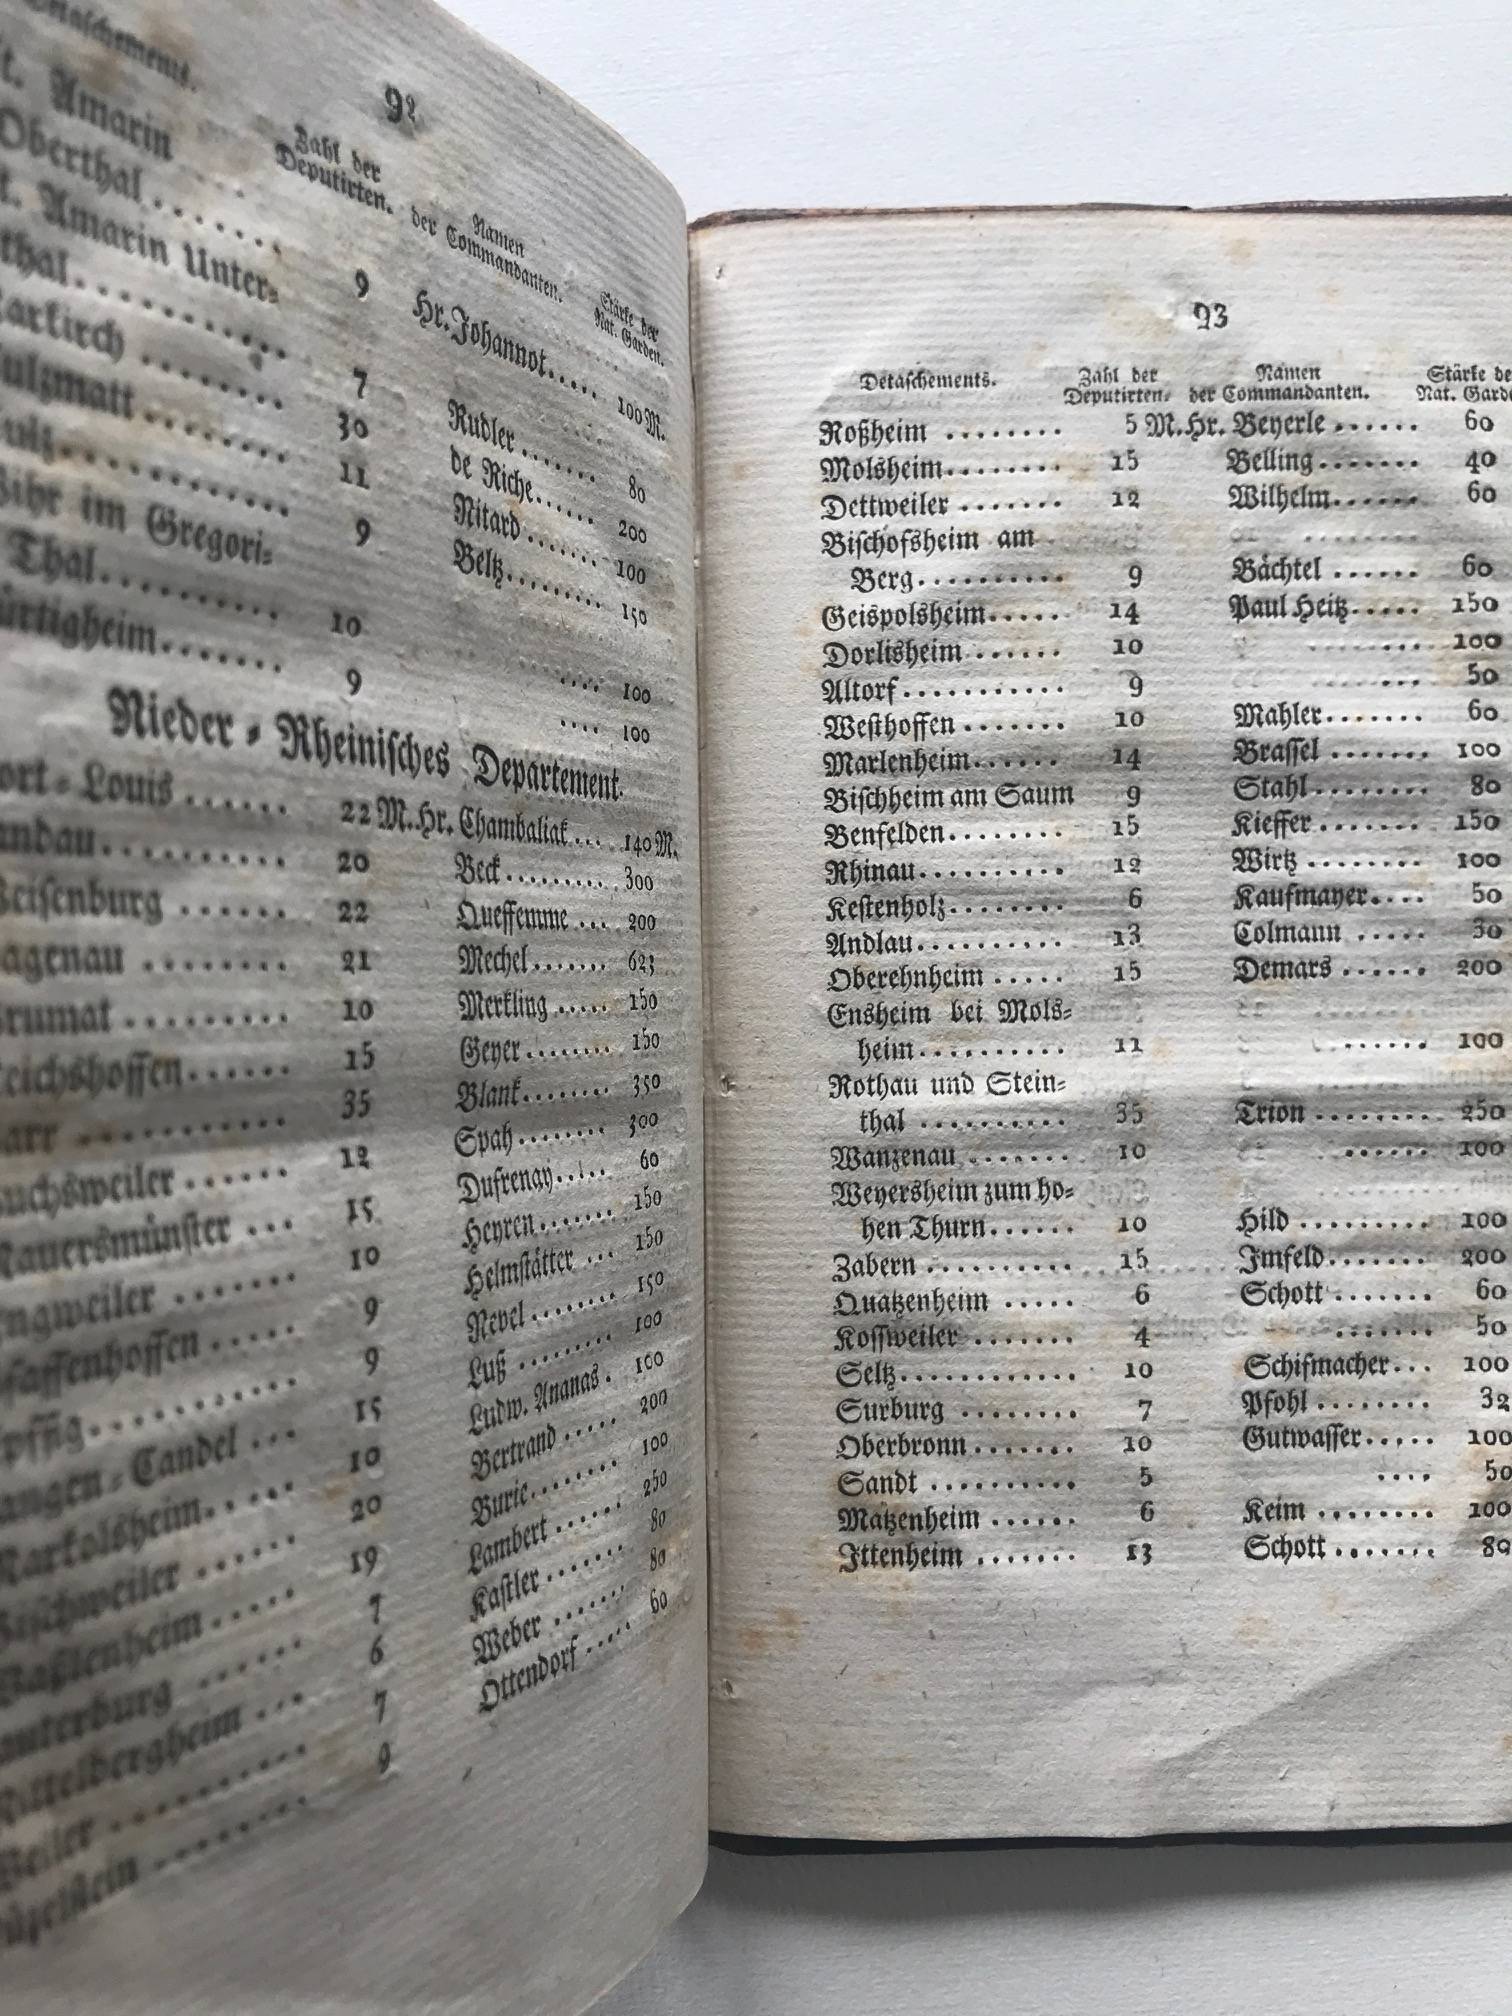 92
Zahl der
Deputirten.
Namen
der Commandanten.
Stärke der
Nat. Garden.
Amarin
Oberthal........ 9 Hr. Johannot..... 100 M.
Amarin Unter-
thal........... 7 Rudler....... 80
30 de Riche...... 200
11 Nitard....... 100
9 Beltz......... 150
im Gregori-
Thal.......... 10 .... 100
9 .... 100
Nieder-Rheinisches Departement.
Louis ...... 22 M. Hr. Chambaliak... 140 M.
20 Beck.......... 300
22 Queffemme ... 200
21 Mechel....... 623
10 Merkling ..... 150
15 Geyer........ 150
35 Blank........ 350
12 Spatz........ 300
15 Dufrenay..... 60
10 Heyren....... 150
9 Helmstätter ... 150
9 Nebel........ 150
15 Lutz ........ 100
10 Ludw. Ananas. 100
20 Bertrand ..... 200
19 Burie........ 100
7 Lambert ...... 250
6 Kastler....... 80
7 Weber ....... 80
9 Ottendorf ..... 60
93
Detaschements. Zahl der Namen Stärke
Deputirten. der Commandanten. Nat.
Roßheim ........ 5 M. Hr. Beyerle ...... 60
Molsheim........ 15 Belling....... 40
Dettweiler ....... 12 Wilhelm...... 60
Bischofsheim am
Berg.......... 9 Bächtel ...... 60
Geispolsheim..... 14 Paul Heitz..... 150
Dorlisheim ...... 10 ...... 100
Altorf........... 9 ... 50
Westhoffen ...... 10 Mahler....... 60
Marlenheim...... 14 Brassel ....... 100
Bischheim am Saum 9 Stahl........ 80
Benfelden........ 15 Kieffer ....... 150
Rhinau.......... 12 Wirtz ........ 100
Kestenholz........ 6 Kaufmayer.... 50
Andlau.......... 13 Colmann ..... 30
Oberehnheim ..... 15 Demars ...... 200
Ensheim bei Mols-
heim.......... 11 ...... 100
Rothau und Stein-
thal .......... 35 Trion ........ 250
Wanzenau ....... 10 ...... 100
Weyersheim zum ho-
hen Thurn...... 10 Hild ......... 100
Zabern .......... 15 Imfeld....... 200
Quatzenheim ..... 6 Schott ....... 60
Kossweiler ....... 4 ...... 50
Seltz............ 10 Schifmacher... 100
Surburg ........ 7 Pfohl ........ 32
Oberbronn....... 10 Gutwasser..... 100
Sandt .......... 5 .... 50
Matzenheim ...... 6 Keim ........ 100
Ittenheim ....... 13 Schott ....... 80